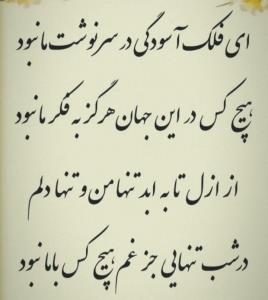 ای فلک آسودگی در سرنوشت ما نبود
هیچ کس در این جهان هرگز به فکر ما نبود
از ازل تا به ابد تنها من و تنها دلم
در شب تنهایی جز غم هیچ کس با ما نبود